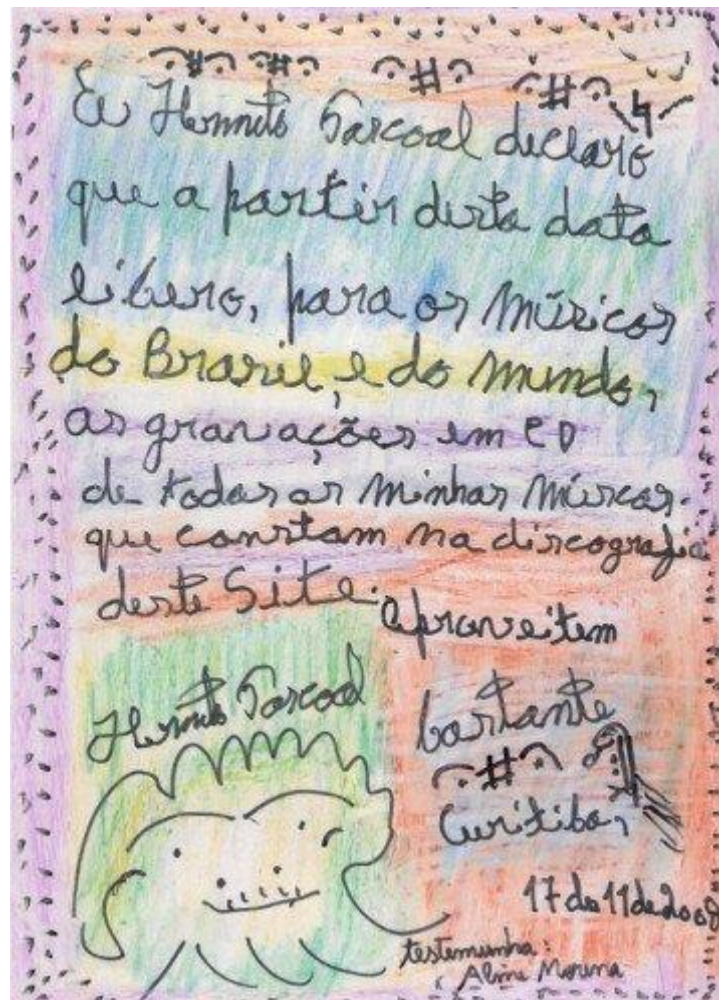 Eu Hermeto Pascoal declaro
que a partir desta data
libero, para os músicos
do Brasil, e do mundo,
as gravações em CD
de todas as minhas músicas
que constam na discografia
deste Site.
Aproveitem
bastante
Hermeto Pascoal
Curitiba,
17 de 11 de 2008
testemunha:
Aline Morena